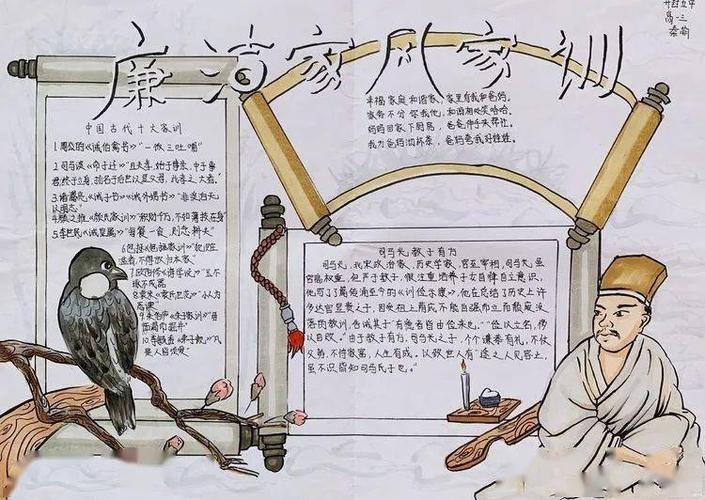 廉洁家风家训
开封五中
高一三
中国古代十大家训
1.周公的《诫伯禽书》"一饭三吐哺"
2.司马谈《命子迁》"且夫孝,始于事亲,中于事
君,终于立身,扬名于后世以显父母,此孝之大者。"
3.诸葛亮《诫子书》《诫外甥书》"非淡泊无
以明志。"
4.颜之推《颜氏家训》"积财千万,不如薄技在身"
5.李世民《诫皇属》"每餐一食,则念耕夫"
6.包拯《包拯家训》
者,不得放归本家"
7.欧阳修《诲学说》"玉不
琢不成器
8.袁采《袁氏世范》"小人为
9.朱伯庐《朱子家训》
幸福家庭和谐家,家里有我和爸妈。
家务不分你我他,和谐相处笑哈哈。
妈妈回家下厨房,爸爸伸手来帮忙。
我为爸妈沏杯茶,爸妈夸我好娃娃。
司马光教子有方
司马光,我宋政治家、历史学家,官至宰相,司马光虽
官高权重,但严于教子,很注重培养子女自律自立意识,
他写了篇传诵至今的《训俭示康》,他在总结了历史上许
多达官显贵之子,因受祖上荫庇不能自强自立而颓废没
落的教训,告诫其子"有德者皆由俭来也。""俭以立名,侈
以自败。"由于教子有方,司马光之子,个个谦恭有礼,不仗
父势,不恃家富,人生有成。以致世人有"途之人见容止,
虽不识皆知司马氏子也。"